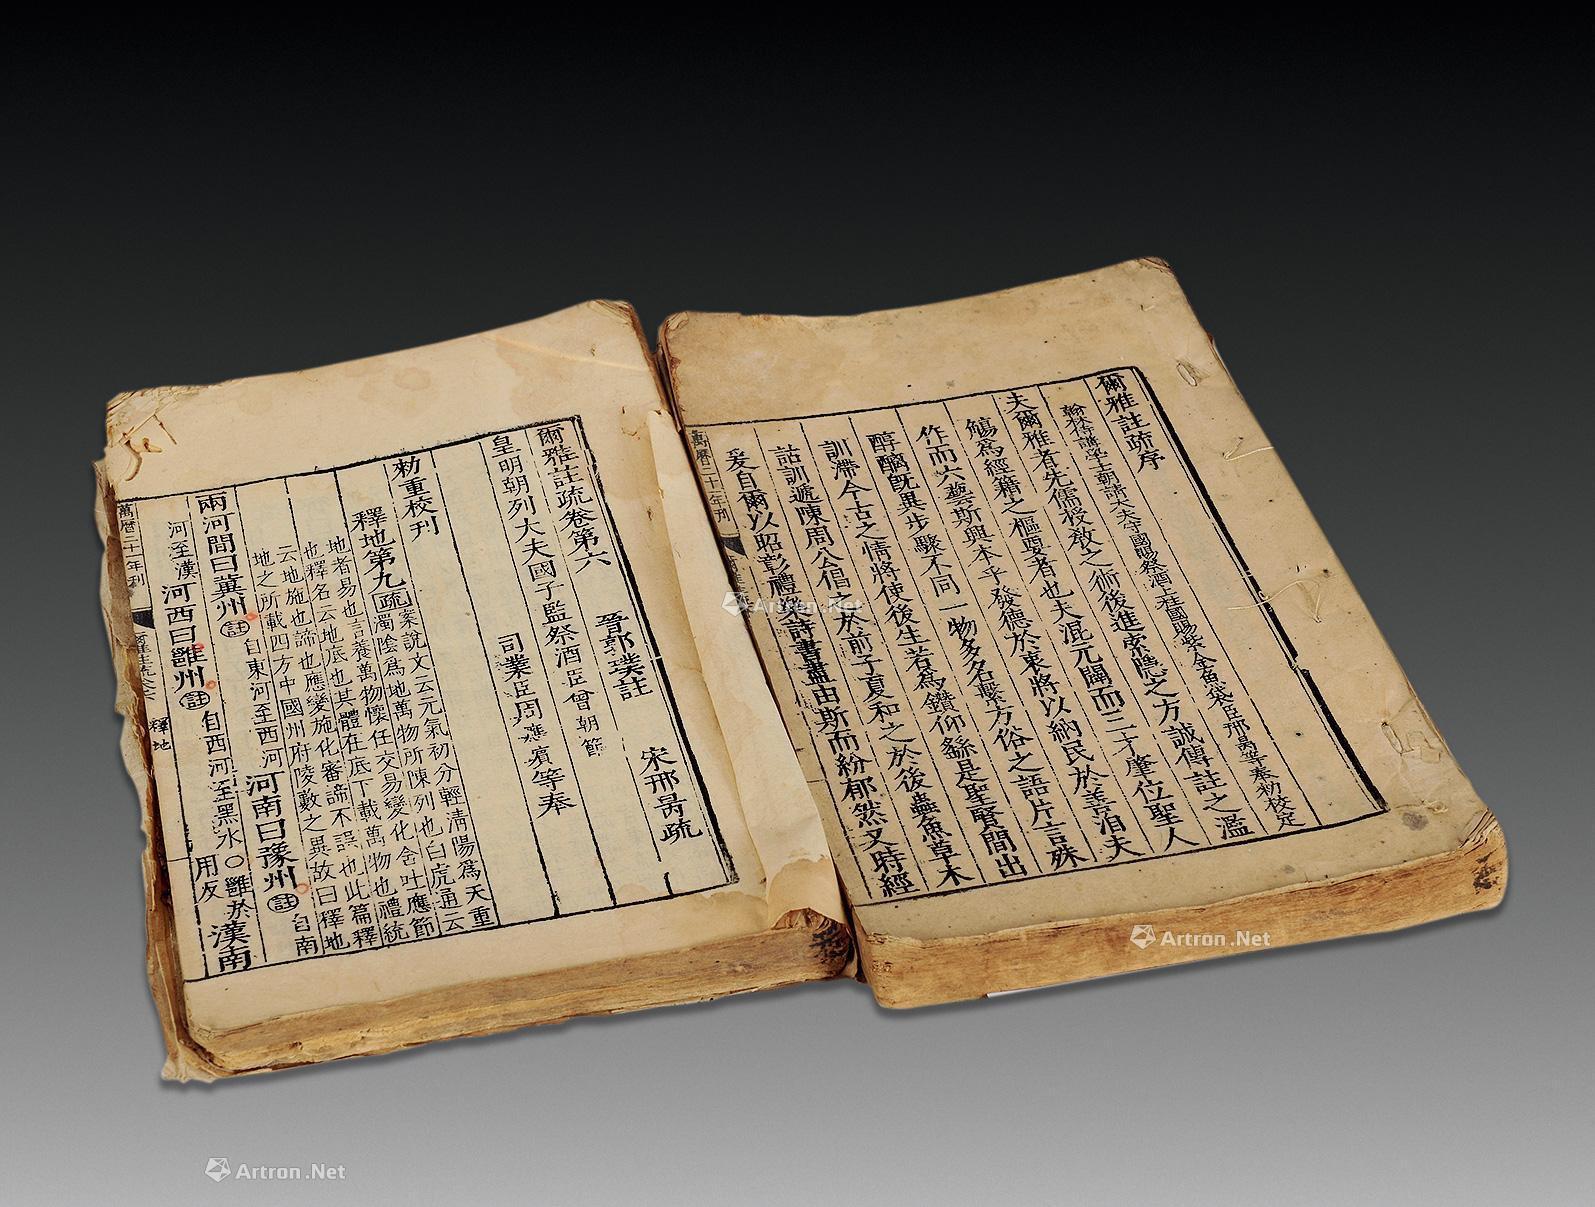 爾雅註疏序
翰林侍講學士朝請大夫守國子祭酒上柱國賜紫金魚袋臣邢昺等奉勑校定
夫爾雅者先儒授敎之術後進索隱之方誠傳註之濫
觴爲經籍之樞要者也夫混元闢而三才肇位聖人
作而六藝斯興本乎發德於衷將以納民於善洎夫
醇醨旣異步驟不同一物多名繫方俗之語片言殊
訓滯今古之情將使後生若爲鑽仰繇是聖賢間出
詁訓遞陳周公倡之於前子夏和之於後蟲魚草木
爰自爾以昭彰禮樂詩書盡由斯而紛郁然又時經
萬曆二十一年刊
爾雅註疏卷第六
晉郭璞註 宋邢昺疏
皇明朝列大夫國子監祭酒臣曾朝節
司業臣周應賓等奉
勑重校刊
釋地第九 疏 案說文云元氣初分輕淸陽爲天重
濁陰爲地萬物所陳列也白虎通云
地者易也言養萬物懷任交易變化含吐應節
也釋名云地底也其體在底下載萬物也禮統
云地施也諦也應變施化審諦不誤也此篇釋
地之所載四方中國州府陵藪之異故曰釋地
兩河間曰冀州 註 自東河至西河 河南曰豫州 註 自南
河至漢 河西曰雝州 註 自西河至黑水○雝於用反 漢南
萬曆二十一年刊
爾雅註疏卷之六 釋地
Artron.Net
Artron.Net
Artron.Net